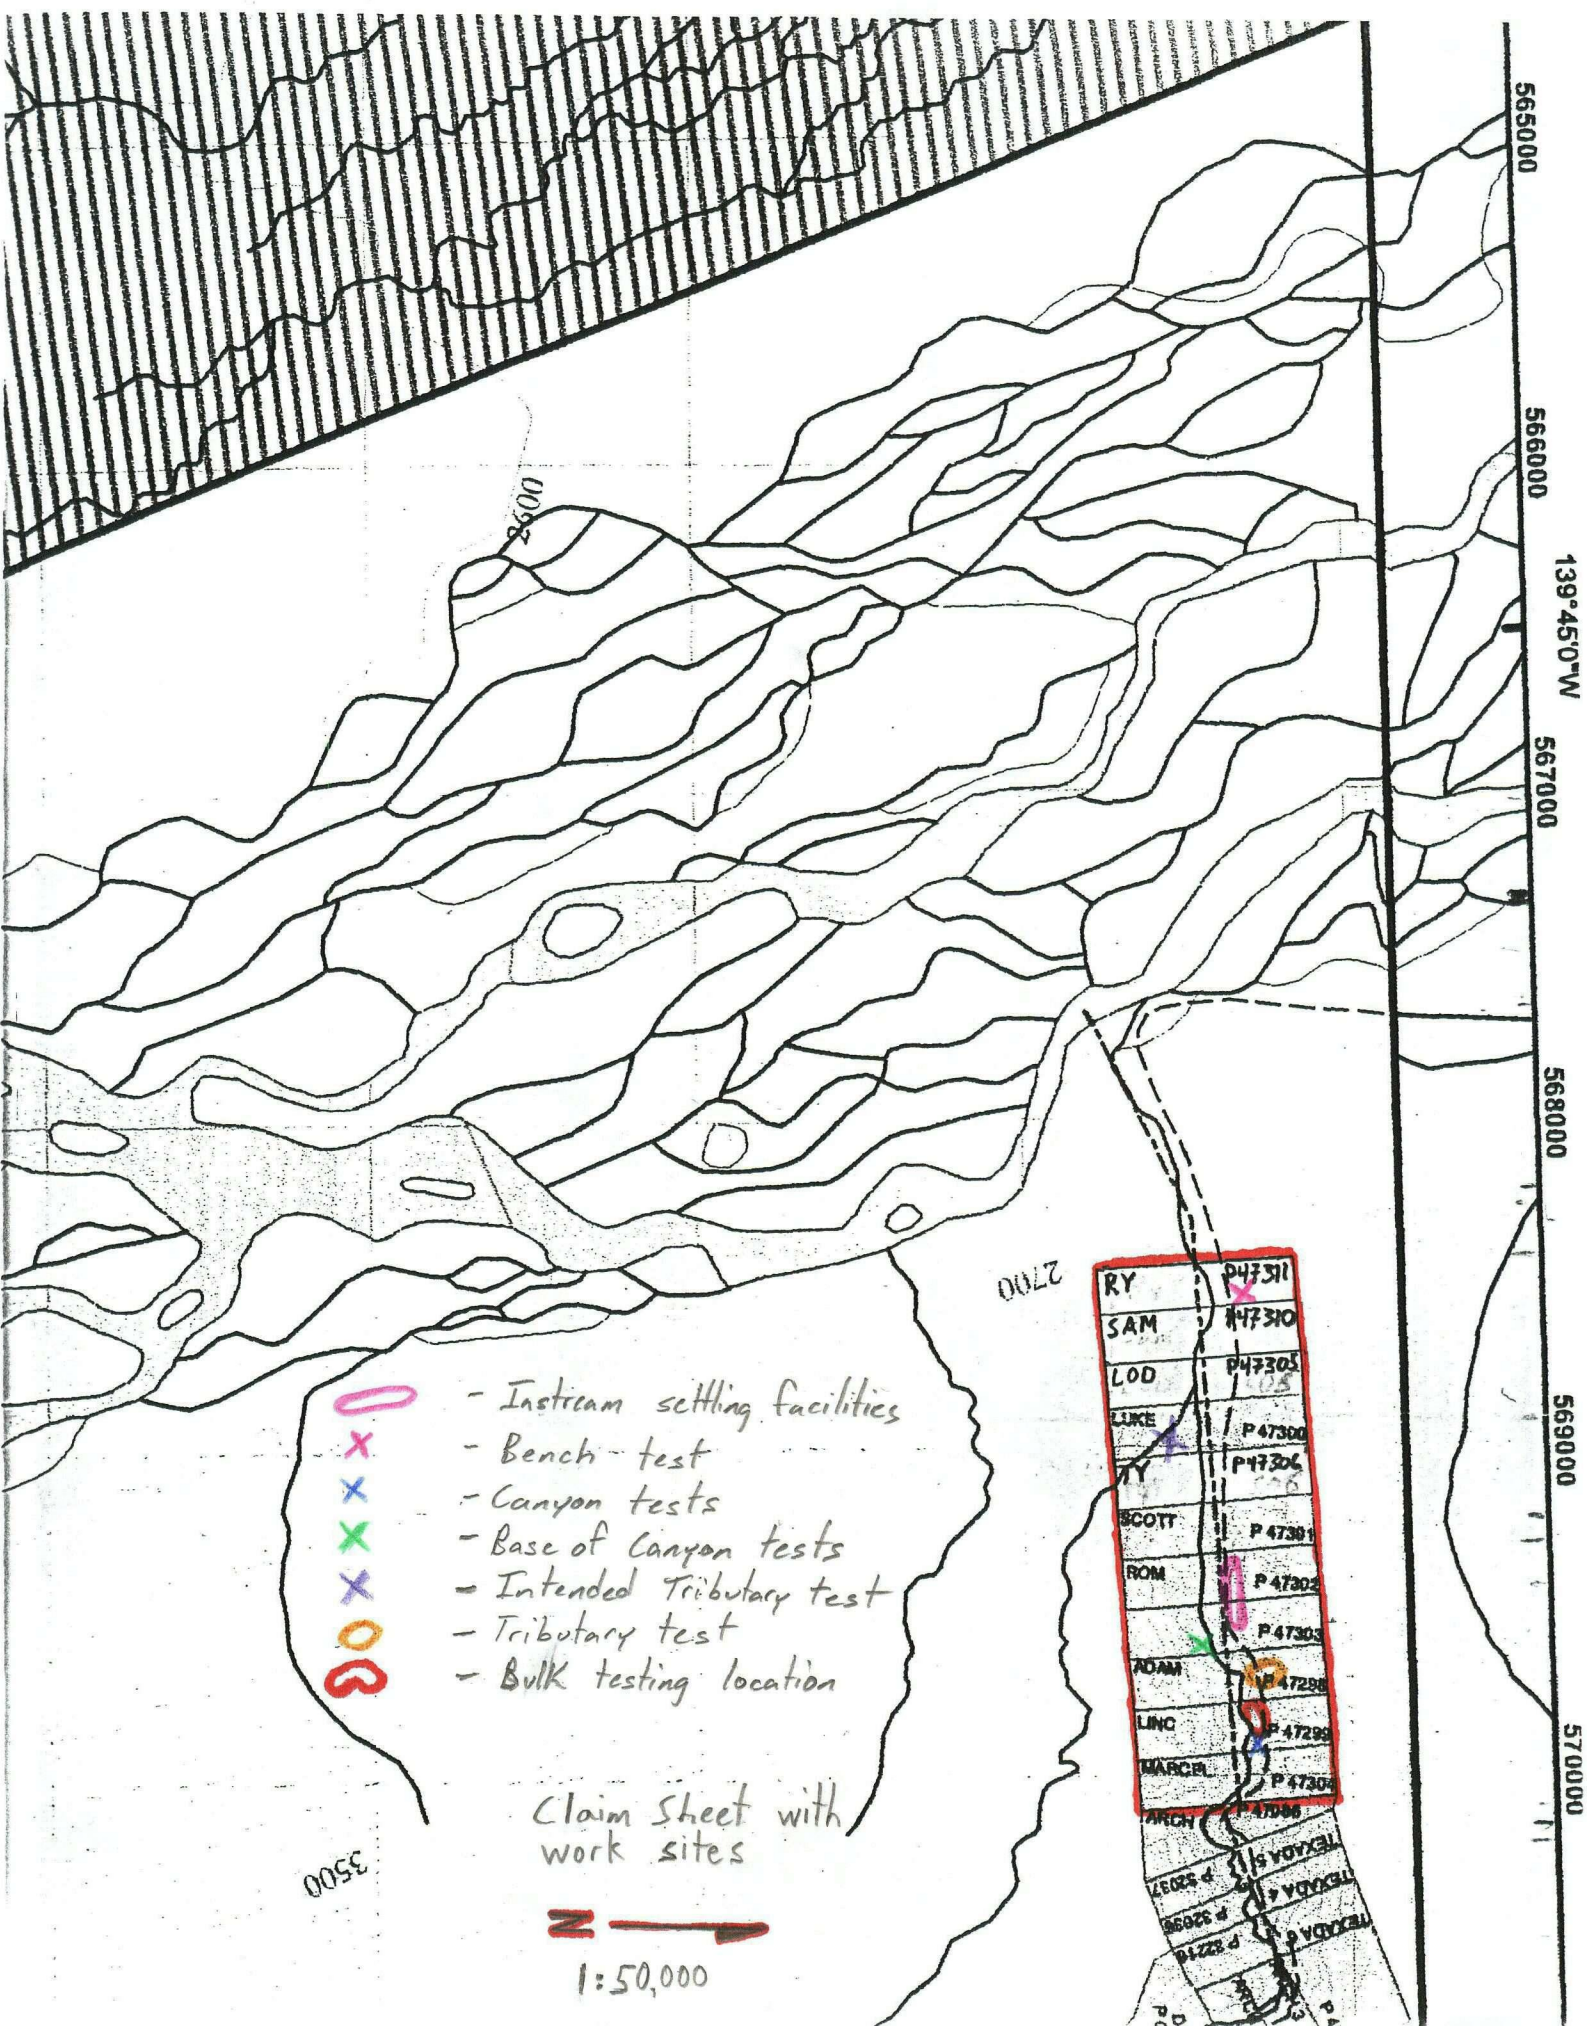 565000
566000
139°45'0"W
567000
568000
569000
570000
2600
2700
3500
RY P47311
SAM P47310
LOD P47305
LUKE P 47300
TY P47306
SCOTT P 47301
ROM P 47302
P 47303
ADAM P 47298
LINC P 47299
MARCEL P 47304
ARCH
TEXADA 5
P 32037
TEXADA 4
P 32036
TEXADA 6
P 32216
- Instream settling facilities
- Bench test
- Canyon tests
- Base of Canyon tests
- Intended Tributary test
- Tributary test
- Bulk testing location
Claim Sheet with
work sites
N
1:50,000